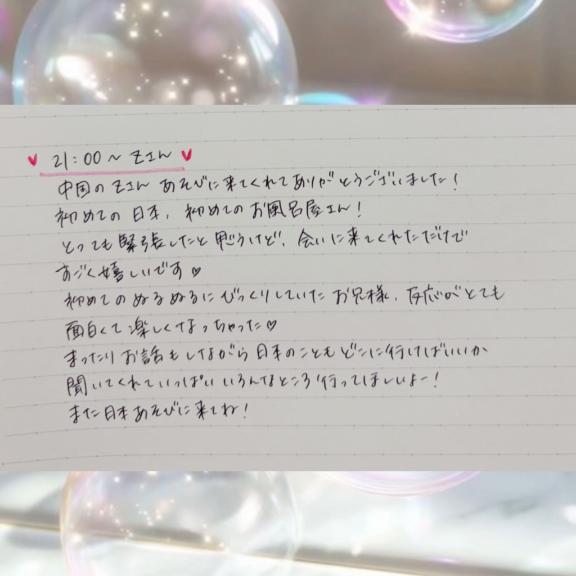 ♥ 21:00～Zさん ♥
中国のZさん あそびに来てくれてありがとうございました！
初めての日本、初めてのお風呂屋さん！
とっても緊張したと思うけど、会いに来てくれただけで
すごく嬉しいです♡
初めてのぬるぬるにびっくりしていたお兄様、反応がとても
面白くて楽しくなっちゃった♡
まったりお話もしながら日本のこともどこに行けばいいか
聞いてくれていっぱいいろんなところ行ってほしいよー！
また日本あそびに来てね！